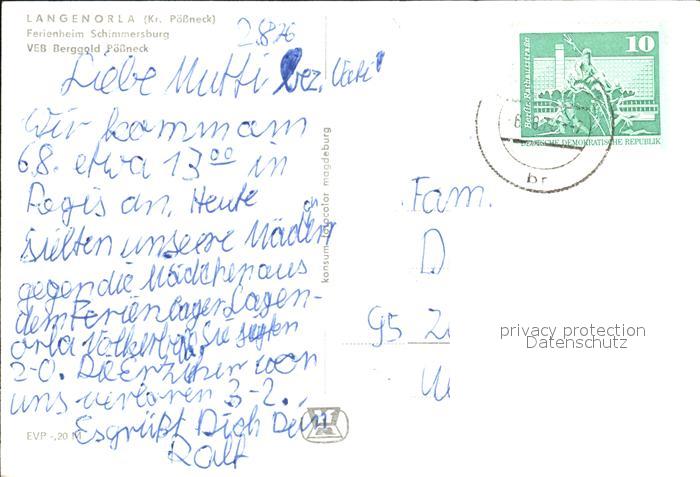 LANGENORLA (Kr. Pößneck)
Ferienheim Schimmersburg
VEB Berggold Pößneck
2.8.76
Liebe Mutti bez. Vati
Wir kommam
6.8. etwa 13⁰⁰ in
Regis an. Heute
siellten unsere Mädchen
gegen die Mädchen aus
dem Ferienlager Lagen-
orla Völkerball. Sie siegten
2-0. Die Erzieher von
uns verloren 3-2.
Es grüßt Dich Dein
Ralf
EVP -,20 M
konsum fotocolor magdeburg
10
Berlin, Rathausstraße
DEUTSCHE DEMOKRATISCHE REPUBLIK
br
Fam.
D
95 Z
privacy protection
Datenschutz